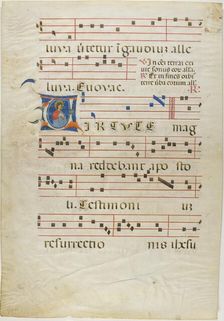 tura utetur i gaudium alle
In ōēz terrā ex
iuit sonus eor alla.
℟. Et in fines orbis
terre uba eorum all.
luya. Euouae.
VIRTUTE mag
na reddebant apo sto
li. Testimoni uz
resurrectio nis iħesu